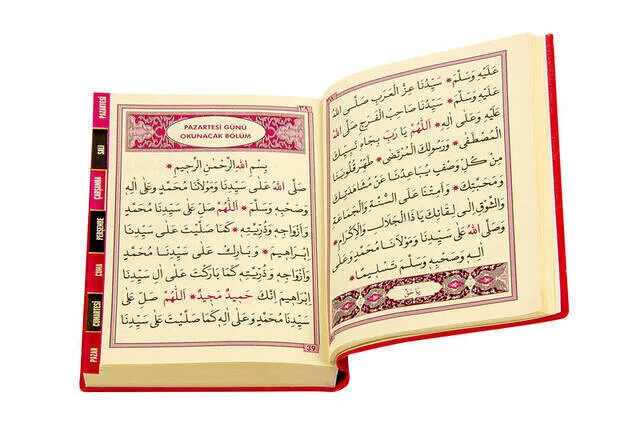 عَلَيْهِ وَسَلَّمَ * سَيِّدِنَا عِزُّ الْعَرَبِ صَلَّى اللهُ
عَلَيْهِ وَسَلَّمَ * سَيِّدِنَا صَاحِبُ الْفَرَجِ صَلَّى اللهُ
عَلَيْهِ وَعَلٰى اٰلِهِ * اَللّٰهُمَّ يَا رَبِّ بِجَاهِ نَبِيِّكَ
الْمُصْطَفٰى * وَرَسُولِكَ الْمُرْتَضٰى * طَهِّرْ قُلُوبَنَا
مِنْ كُلِّ وَصْفٍ يُبَاعِدُنَا عَنْ مُشَاهَدَتِكَ
وَمَحَبَّتِكَ * وَاَمِتْنَا عَلَى السُّنَّةِ وَالْجَمَاعَةِ
وَالشَّوْقِ اِلٰى لِقَائِكَ يَا ذَا الْجَلَالِ وَالْاِكْرَامِ *
وَصَلَّى اللهُ عَلٰى سَيِّدِنَا وَمَوْلَانَا مُحَمَّدٍ وَعَلٰى
اٰلِهِ وَصَحْبِهِ وَسَلَّمَ تَسْلِيمًا *
٣٨
PAZARTESİ GÜNÜ
OKUNACAK BÖLÜM
بِسْمِ اللهِ الرَّحْمٰنِ الرَّحِيمِ *
صَلَّى اللهُ عَلٰى سَيِّدِنَا وَمَوْلَانَا مُحَمَّدٍ وَعَلٰى اٰلِهِ
وَصَحْبِهِ وَسَلَّمَ * اَللّٰهُمَّ صَلِّ عَلٰى سَيِّدِنَا مُحَمَّدٍ
وَاَزْوَاجِهِ وَذُرِّيَّتِهِ * كَمَا صَلَّيْتَ عَلٰى سَيِّدِنَا
اِبْرَاهِيمَ * وَبَارِكْ عَلٰى سَيِّدِنَا مُحَمَّدٍ
وَاَزْوَاجِهِ وَذُرِّيَّتِهِ كَمَا بَارَكْتَ عَلٰى اٰلِ سَيِّدِنَا
اِبْرَاهِيمَ اِنَّكَ حَمِيدٌ مَجِيدٌ * اَللّٰهُمَّ صَلِّ عَلٰى
سَيِّدِنَا مُحَمَّدٍ وَعَلٰى اٰلِهِ كَمَا صَلَّيْتَ عَلٰى سَيِّدِنَا
39
PAZARTESİ
SALI
ÇARŞAMBA
PERŞEMBE
CUMA
CUMARTESİ
PAZAR